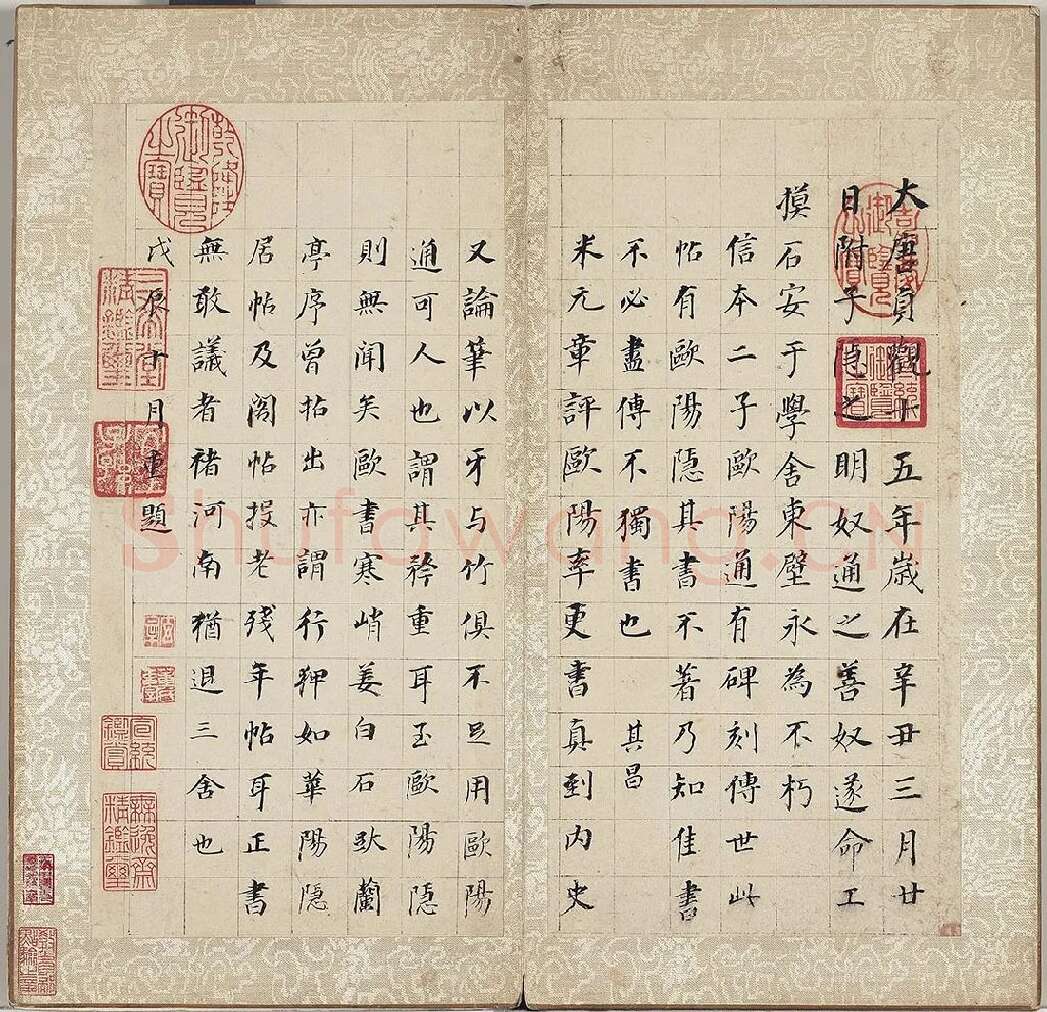 大唐貞觀十五年歲在辛丑三月廿
日附子隱之明奴通之善奴遂命工
摸石安于學舍東壁永為不朽
信本二子歐陽通有碑刻傳世此
帖有歐陽隱其書不著乃知佳書
不必盡傳不獨書也 其昌
米元章評歐陽率更書真到內史
又論筆以牙與竹俱不足用歐陽
通可人也謂其矜重耳玉歐陽隱
則無聞矣歐書寒峭姜白石欤蘭
亭序曾拓出亦謂行狎如華陽隱
居帖及閣帖投老殘年帖耳正書
無敢議者褚河南猶退三舍也
戊辰十月重題
乾隆御覽之寶
三希堂精鑑璽
宣統鑑賞
無逸齋精鑑璽
Shufawang.CN